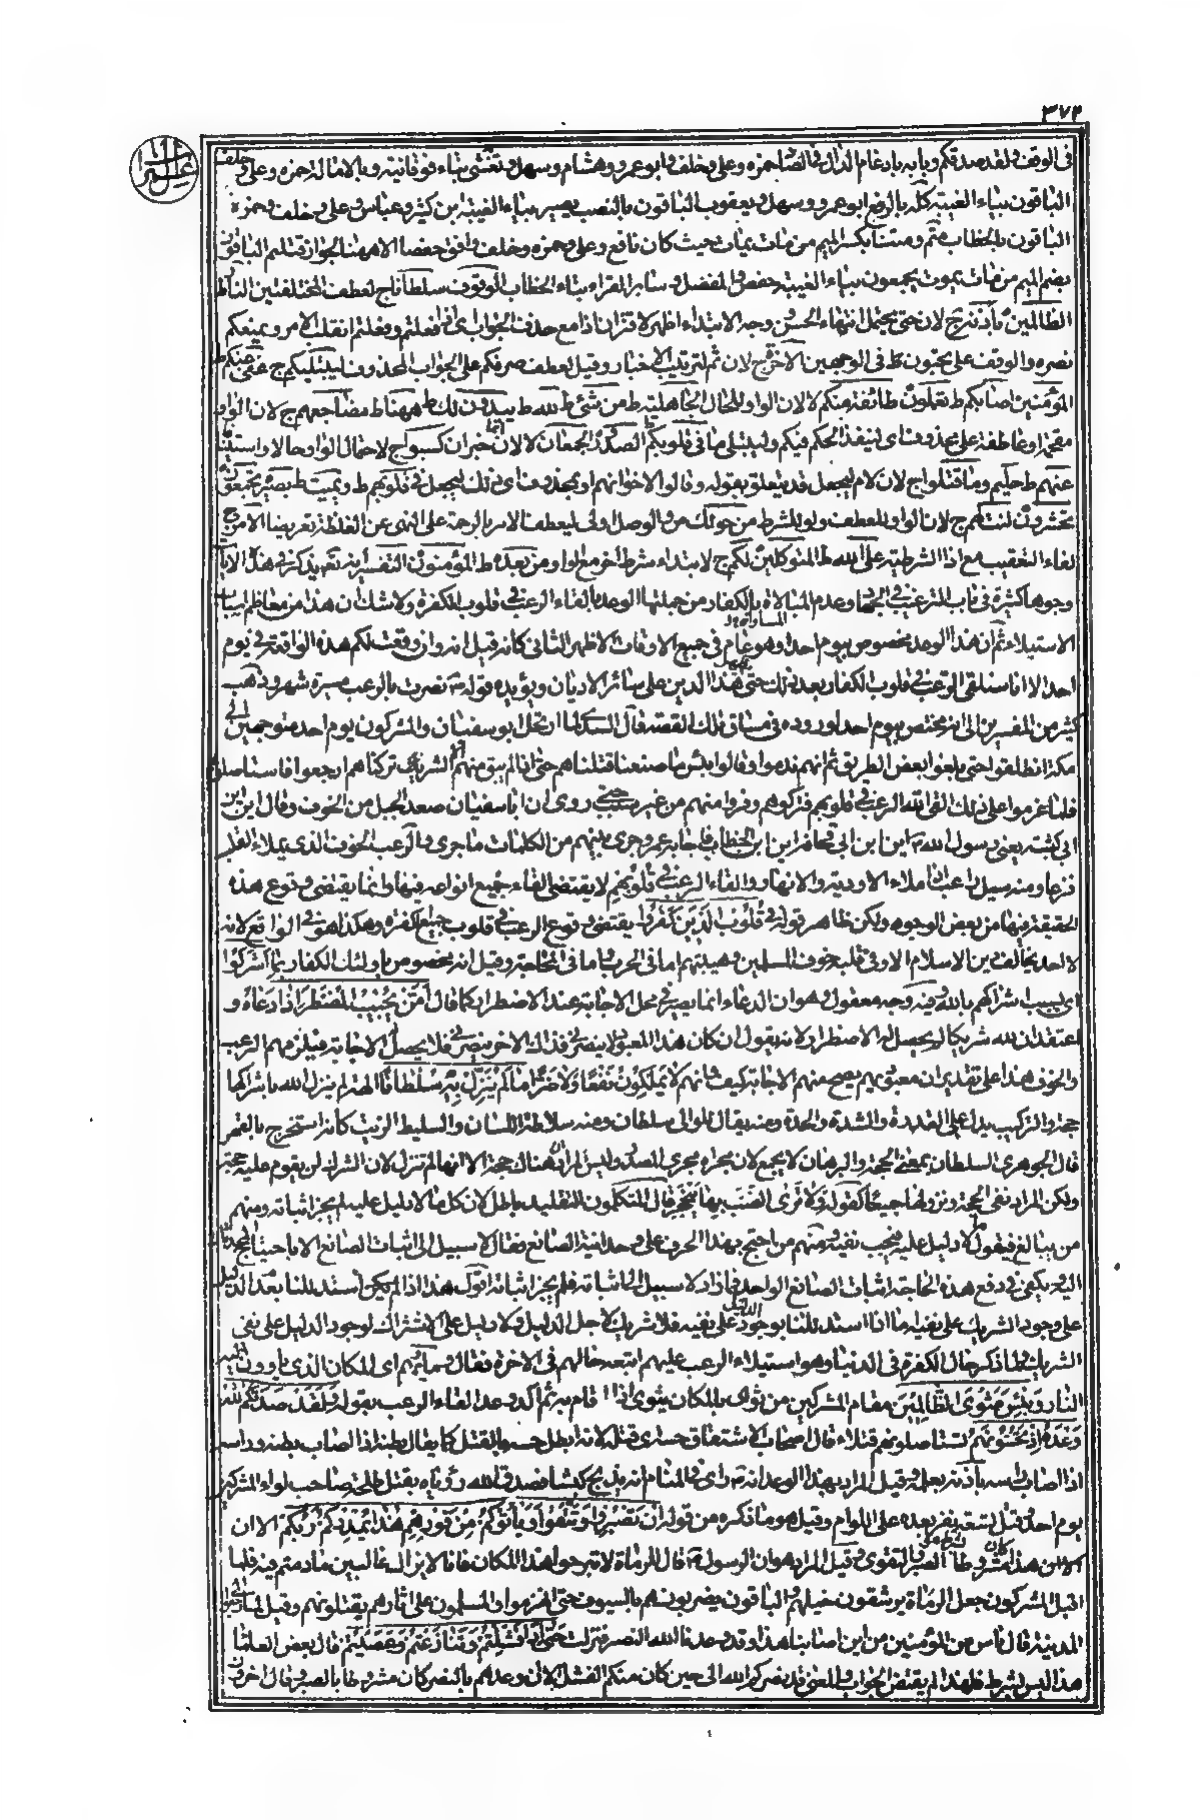 ٣٧٢
في الوقف ولقد صدقكم وبابه بادغام الدال في الصاد حمزه وعلي وخلف وابو عمرو وهشام وسهل وتغشى بتاء فوقانية وبالامالة حمزه وعلي وخلف
الباقون بياء الغيبة كله بالرفع ابو عمرو وسهل ويعقوب الباقون بالنصب يصير بياء الغيبة ابن كثير وعباس وعلي وخلف وحمزه
الباقون بالخطاب متم ومتنا بكسر الميم من مات يمات حيث كان نافع وعلي وحمزه وخلف وافق حفصا الا ههنا لجوار قتلتم الباقون
بضم الميم من مات يموت يجمعون بياء الغيبة حفص والمفضل وسائر القراء بتاء الخطاب الوقوف سلطانا ج لعطف المختلفتين النار ط
الظالمين باذنه ج لان حتى يحتمل انتهاء الحس ووجه الابتداء اظهر لاقتران اذا مع حذف الجواب اي اذا فعلتم وفعلتم انقلب الامر ومنعكم
نصره والوقف على تحبون ط في الوجهين الاخرة ج لان ثم لترتيب الاخبار وقيل لعطف صرفكم على الجواب المحذوف ليبتليكم ج عنكم ط
المؤمنين اصابكم ط تعملون طائفة منكم لا لان الواو للحال الجاهلية ط من شيء ط لله ط يبدون لك ط ههنا ط مضاجعهم ج لان الواو
مقحمة او عاطفة على محذوف اي لينفذ الحكم فيكم وليبتلي ما في قلوبكم ط الصدور الجمعان لا لان انما خبر ان كسبوا ج لاحتمال الواو حالا واستينافا
عنهم ط حليم وما قتلوا ج لان لام ليجعل قد يتعلق بقوله وقالوا لاخوانهم او بمحذوف اي ذلك ليجعل في قلوبهم ط ويميت ط بصير يجمعون
تحشرون لنت لهم ج لان الواو للعطف ولو للشرط من حولك ص والوصل اولى ليعطف الامر بالرحمة على النهي عن الغلظة تعريضا الامر ج
لفاء التعقيب مع اذا الشرطية على الله ط المتوكلين لكم ج لابتداء شرط اخر مع الواو من بعده ط المؤمنون التفسير انه تعالى ذكر في هذه الاية
وجوها كثيرة في باب الترغيب في الجهاد وعدم المبالاة بالكفار من جملتها الوعد بالقاء الرعب في قلوب الكفرة ولا شك ان هذا من معاظم اسباب
الاستيلاء ثم ان هذا الوعد مخصوص بيوم احد او هو عام في جميع الاوقات الاظهر الثاني كانه قيل انه وان وقعت لكم هذه الواقعة في يوم
احد الا انا سنلقي الرعب في قلوب الكفار بعد ذلك حتى يظهر هذا الدين على سائر الاديان ويؤيده قوله نصرت بالرعب مسيرة شهر وذهب
كثير من المفسرين الى انه مختص بيوم احد لوروده في مساق تلك القصة قال السدي لما ارتحل ابو سفيان والمشركون يوم احد متوجهين الى
مكة انطلقوا حتى بلغوا بعض الطريق ثم انهم ندموا وقالوا بئس ما صنعنا قتلناهم حتى اذا لم يبق منهم الا الشريد تركناهم ارجعوا فاستاصلوهم
فلما عزموا على ذلك القى الله الرعب في قلوبهم فتركوهم وفروا منهم من غير سبب حتى روي ان ابا سفيان صعد الجبل من الخوف وقال اين ابن
ابي كبشة يعني رسول الله اين ابن ابي قحافة اين ابن الخطاب فاجابه عمر وجرى بينهم من الكلمات ما جرى والرعب الخوف الذي يملاء القلب
فزعا ومنه سيل راعب اذا ملاء الاودية والانهار والقاء الرعب في قلوبهم لا يقتضي القاء جميع انواعه فيها وانما يقتضي وقوع هذه
الحقيقة فيها من بعض الوجوه ولكن ظاهر قوله في قلوب الذين كفروا يقتضي وقوع الرعب في قلوب جميع الكفرة وهكذا هو في الواقع لانه
لا احد يخالف دين الاسلام الا وفي قلبه خوف المسلمين وهيبتهم اما في الحرب واما في المحاجة وقيل انه مخصوص باولئك الكفار بما اشركوا
اي بسبب اشراكهم بالله وفيه وجه معقول وهو ان الدعاء انما يصير في محل الاجابة عند الاضطرار كما قال امن يجيب المضطر اذا دعاه و
اعتقد ان لله شريكا لم يحصل له الاضطرار لانه يقول ان كان هذا المعبود لا ينصرني فذلك الاخر ينصرني فلا يحصل الاجابة فيلزمهم الرعب
والخوف هذا على تقدير ان معبودهم يصح منهم الاجابة كيف وانهم لا يملكون نفعا ولا ضرا ما لم ينزل به سلطانا الهة لم ينزل الله باشراكها
حجة والتركيب يدل على القدرة والشدة والحدة ومنه يقال للوالي سلطان ومنه سلاطة اللسان والسليط الزيت كانه استخرج بالقهر
قال الجوهري السلطان بمعنى الحجة والبرهان لا يجمع لان مجراه مجرى المصدر وليس المراد ان هناك حجة الا انها لم تنزل لان الشرك لن يقوم عليه حجة
ولكن المراد نفي الحجة ونزولها جميعا كقوله ولا ترى الضب بها ينجحر قال المتكلمون التقليد باطل لان كل ما لا دليل عليه لم يجز اثباته ومنهم
من يبالغ فيقول ما لا دليل عليه فيجب نفيه ومنهم من احتج بهذا الحرف على وحدانية الصانع فقال لا سبيل الى اثبات الصانع الا باحتياج المحدثات
اليه ويكفي في دفع هذه الحاجة اثبات الصانع الواحد فما زاد لا سبيل الى اثباته فلم يجز اثباته اقول هذا اذا لم يكن اسند للنا بعد الدليل
على وجود الشريك على نفيه اما اذا استدللنا بوجود الدليل على نفيه فلا شريك لاجل الدليل ولا دليل على الاشراك لوجود الدليل على نفي
الشريك ولما ذكر حال الكفرة في الدنيا وهو استيلاء الرعب عليهم اتبعه حالهم في الاخرة فقال وماواهم اي المكان الذي ياوون اليه
النار وبئس مثوى الظالمين مقام المشركين من ثوى بالمكان يثوي اذا اقام به ثم اكد وعد القاء الرعب بقوله ولقد صدقكم الله
وعده اذ تحسونهم تستاصلونهم قتلا قال اصحاب الاشتقاق حسه اي قتله لانه ابطل حسه بالقتل كما يقال بطنه اذا اصاب بطنه وراسه
اذا اصاب راسه باذنه بعلمه وقيل المراد بهذا الوعد انه راى في المنام انه يذبح كبشا فصدق الله رؤياه بقتل طلحة صاحب لواء المشركين
يوم احد وقتل تسعة نفر بعده على اللواء وقيل هو ما ذكره من قوله ان تصبروا وتتقوا وياتوكم من فورهم هذا يمددكم ربكم الا ان
كان هذا مشروطا بشرط الصبر والتقوى وقيل المراد هو ان الرسول قال للرماة لا تبرحوا هذا المكان فانا لا نزال غالبين ما دمتم فيه فلما
اقبل المشركون جعل الرماة يرشقون خيلهم والباقون يضربونهم بالسيوف حتى انهزموا والمسلمون على اثارهم يقتلونهم وقيل لما رجعوا الى
المدينة قال ناس من المؤمنين من اين اصابنا هذا وقد وعدنا الله النصر فنزلت حتى اذا فشلتم وتنازعتم وعصيتم قال بعض العلماء
هذا ليس بشرط ولهذا لم يقتض الجواب والمعنى قد نصركم الله الى حين كان منكم الفشل لان وعدهم بالنصر كان مشروطا بالصبر وقال اخرون